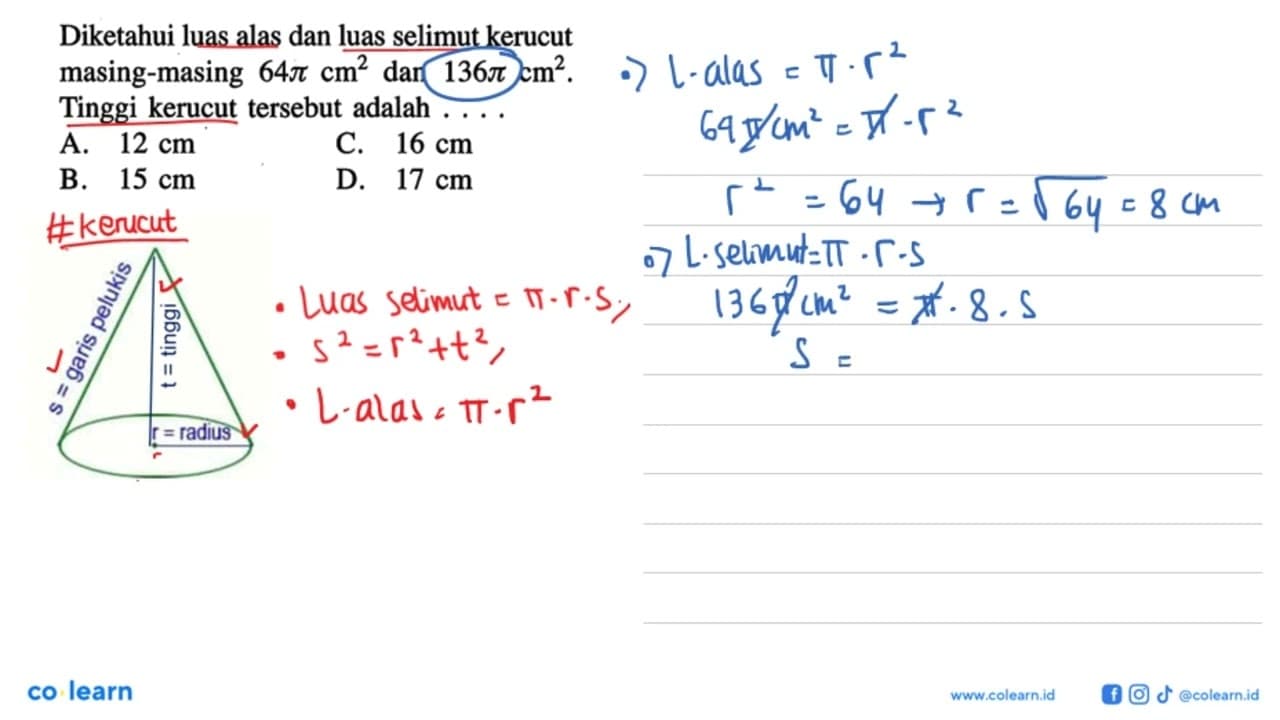 Diketahui luas alas dan luas selimut kerucut
masing-masing 64π cm² dan 136π cm².
Tinggi kerucut tersebut adalah . . . .
A. 12 cm C. 16 cm
B. 15 cm D. 17 cm
#kerucut
s = garis pelukis
t = tinggi
r = radius
r
• Luas selimut = π.r.s,
• s² = r² + t²,
• L.alas = π.r²
•) L.alas = π.r²
64π cm² = π.r²
r² = 64 → r = √64 = 8 cm
•) L.selimut = π.r.s
136π cm² = π.8.s
s =
co learn
www.colearn.id @colearn.id